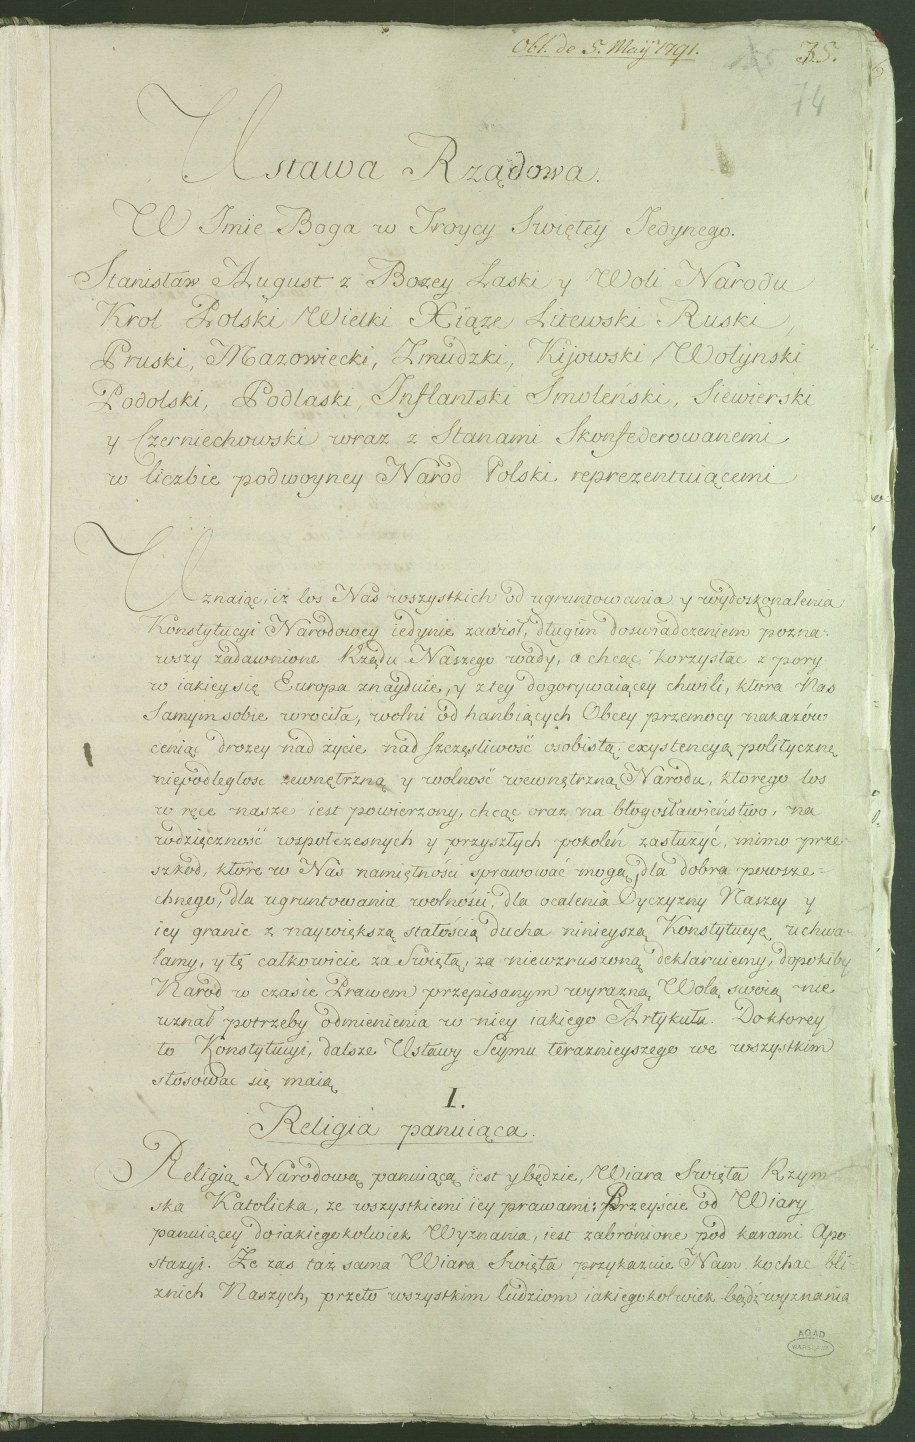 Obl. de 5. Maij 1791.
35.
74
Ustawa Rządowa.
W Imie Boga w Troycy Swiętey Jedynego.
Stanisław August z Bozey Łaski y Woli Narodu
Krol Polski Wielki Xiąze Litewski Ruski,
Pruski, Mazowiecki, Zmudzki, Kijowski, Wołynski
Podolski, Podlaski, Inflantski Smoleński, Siewierski
y Czerniechowski wraz z Stanami Skonfederowanemi
w liczbie podwoyney Naród Polski reprezentuiącemi
Uznaiąc, iż los Nas wszystkich od ugruntowania y wydoskonalenia
Konstytucyi Narodowey iedynie zawisł, długim doswiadczeniem pozna-
wszy zadawnione Rządu Naszego wady, a chcąc korzystac z pory
w iakiey się Europa znayduie, y z tey dogorywaiącey chwili, ktora Nas
Samym sobie wrociła, wolni od hanbiących Obcey przemocy nakazów
ceniąc drozey nad życie nad szczęsliwość osobistą, exystencyą polityczną
niepodległosc zewnętrzną y wolność wewnętrzną Narodu, ktorego los
w ręce nasze iest powierzony, chcąc oraz na błogosławieństwo, na
wdzięczność wspołczesnych y przyszłych pokoleń zasłużyć, mimo prze-
szkod, ktore w Nas namiętności sprawować mogą, dla dobra powsze=
chnego, dla ugruntowania wolności, dla ocalenia Oyczyzny Naszey y
iey granic z naywiększą stałością ducha ninieyszą Konstytucyę uchwa-
lamy, y tę całkowicie za Swiętą, za niewzruszoną deklaruiemy, dopokiby
Narod w czasie Prawem przepisanym wyrazną Wolą swoią nie
uznał potrzeby odmienienia w niey iakiego Artykułu. Doktorey
to Konstytucyi, dalsze Ustawy Seymu teraznieyszego we wszystkim
stosować się maią
I.
Religia panuiąca.
Religią Narodową panuiącą iest y będzie, Wiara Swięta Rzym
ska Katolicka, ze wszystkiemi iey prawami; Przeyście od Wiary
panuiącey do iakiegokolwiek Wyznania, iest zabronione pod karami Apo
stazyi. Ze zas taż sama Wiara Swięta przykazuie Nam, kochac bli-
znich Naszych, przeto wszystkim ludziom iakiegokolwiek bądź wyznania
AGAD